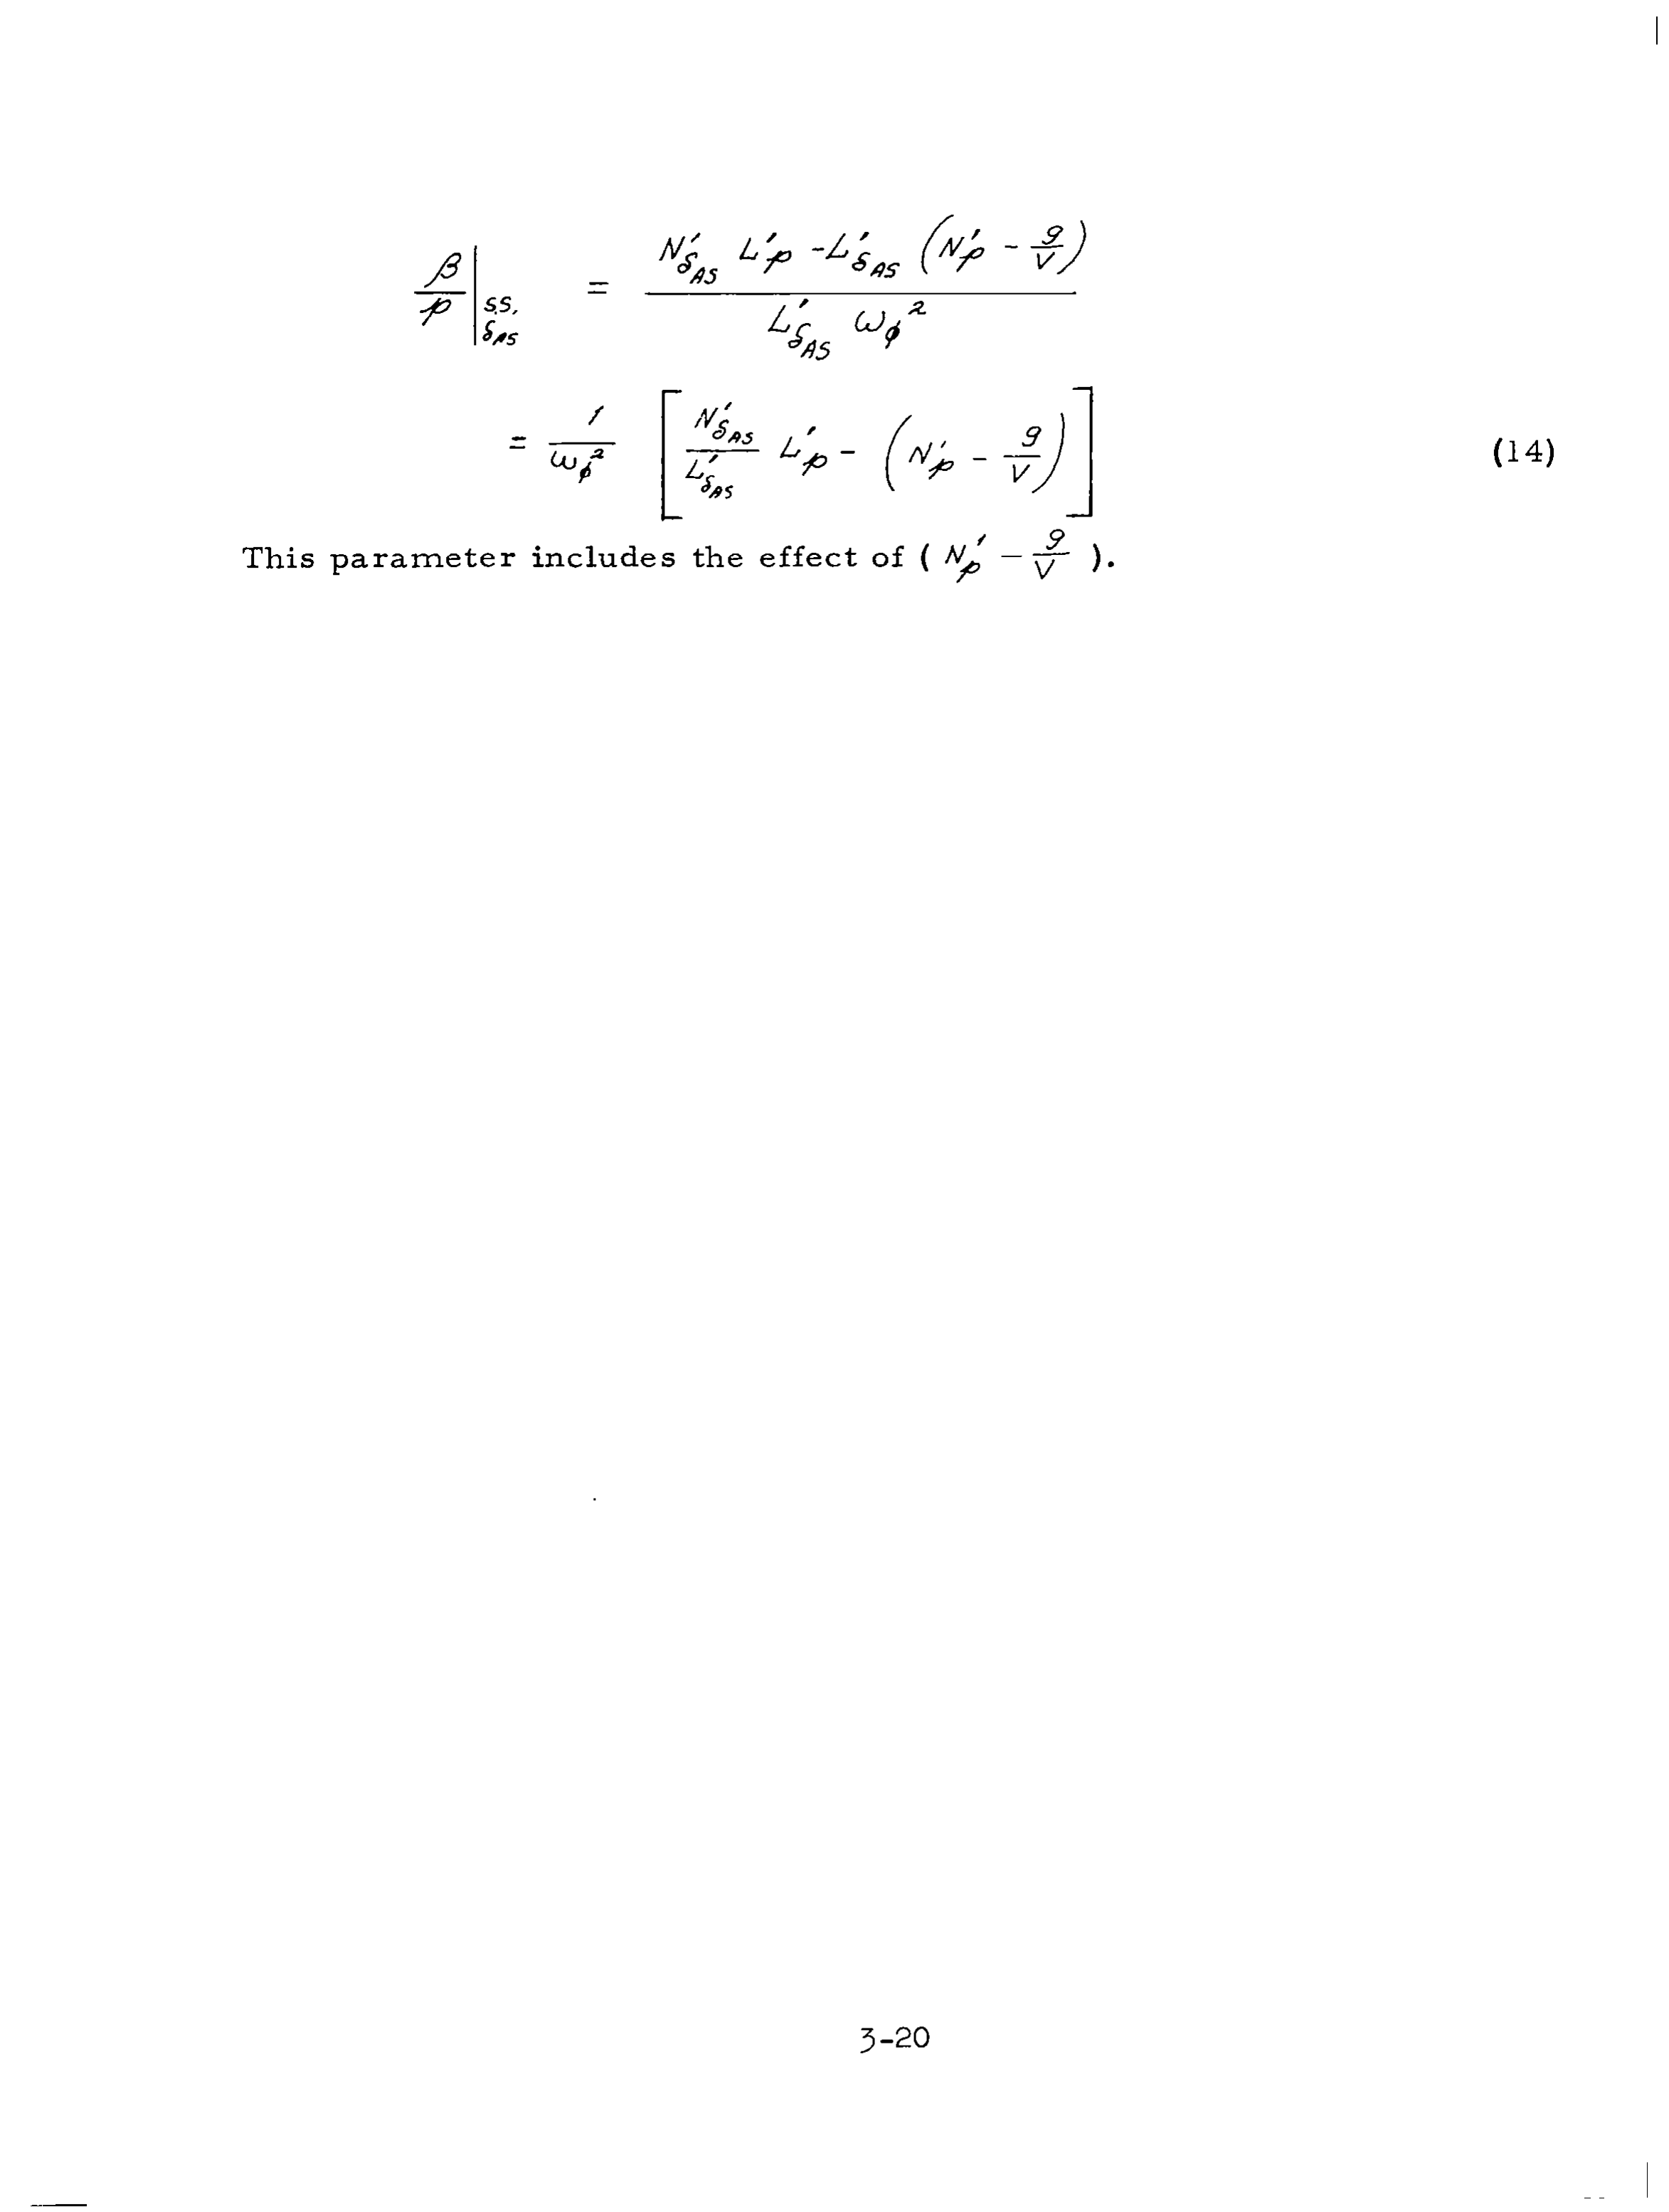 $\left.\frac{\beta}{p}\right|_{\substack{S.S. \\ \delta_{AS}}} = \frac{N'_{\delta_{AS}} L'_p - L'_{\delta_{AS}} \left( N'_p - \frac{g}{V} \right)}{L'_{\delta_{AS}} \omega_\phi^2}$
$= \frac{1}{\omega_\phi^2} \left[ \frac{N'_{\delta_{AS}}}{L'_{\delta_{AS}}} L'_p - \left( N'_p - \frac{g}{V} \right) \right]$ (14)
This parameter includes the effect of ( $N'_p - \frac{g}{V}$ ).
3-20